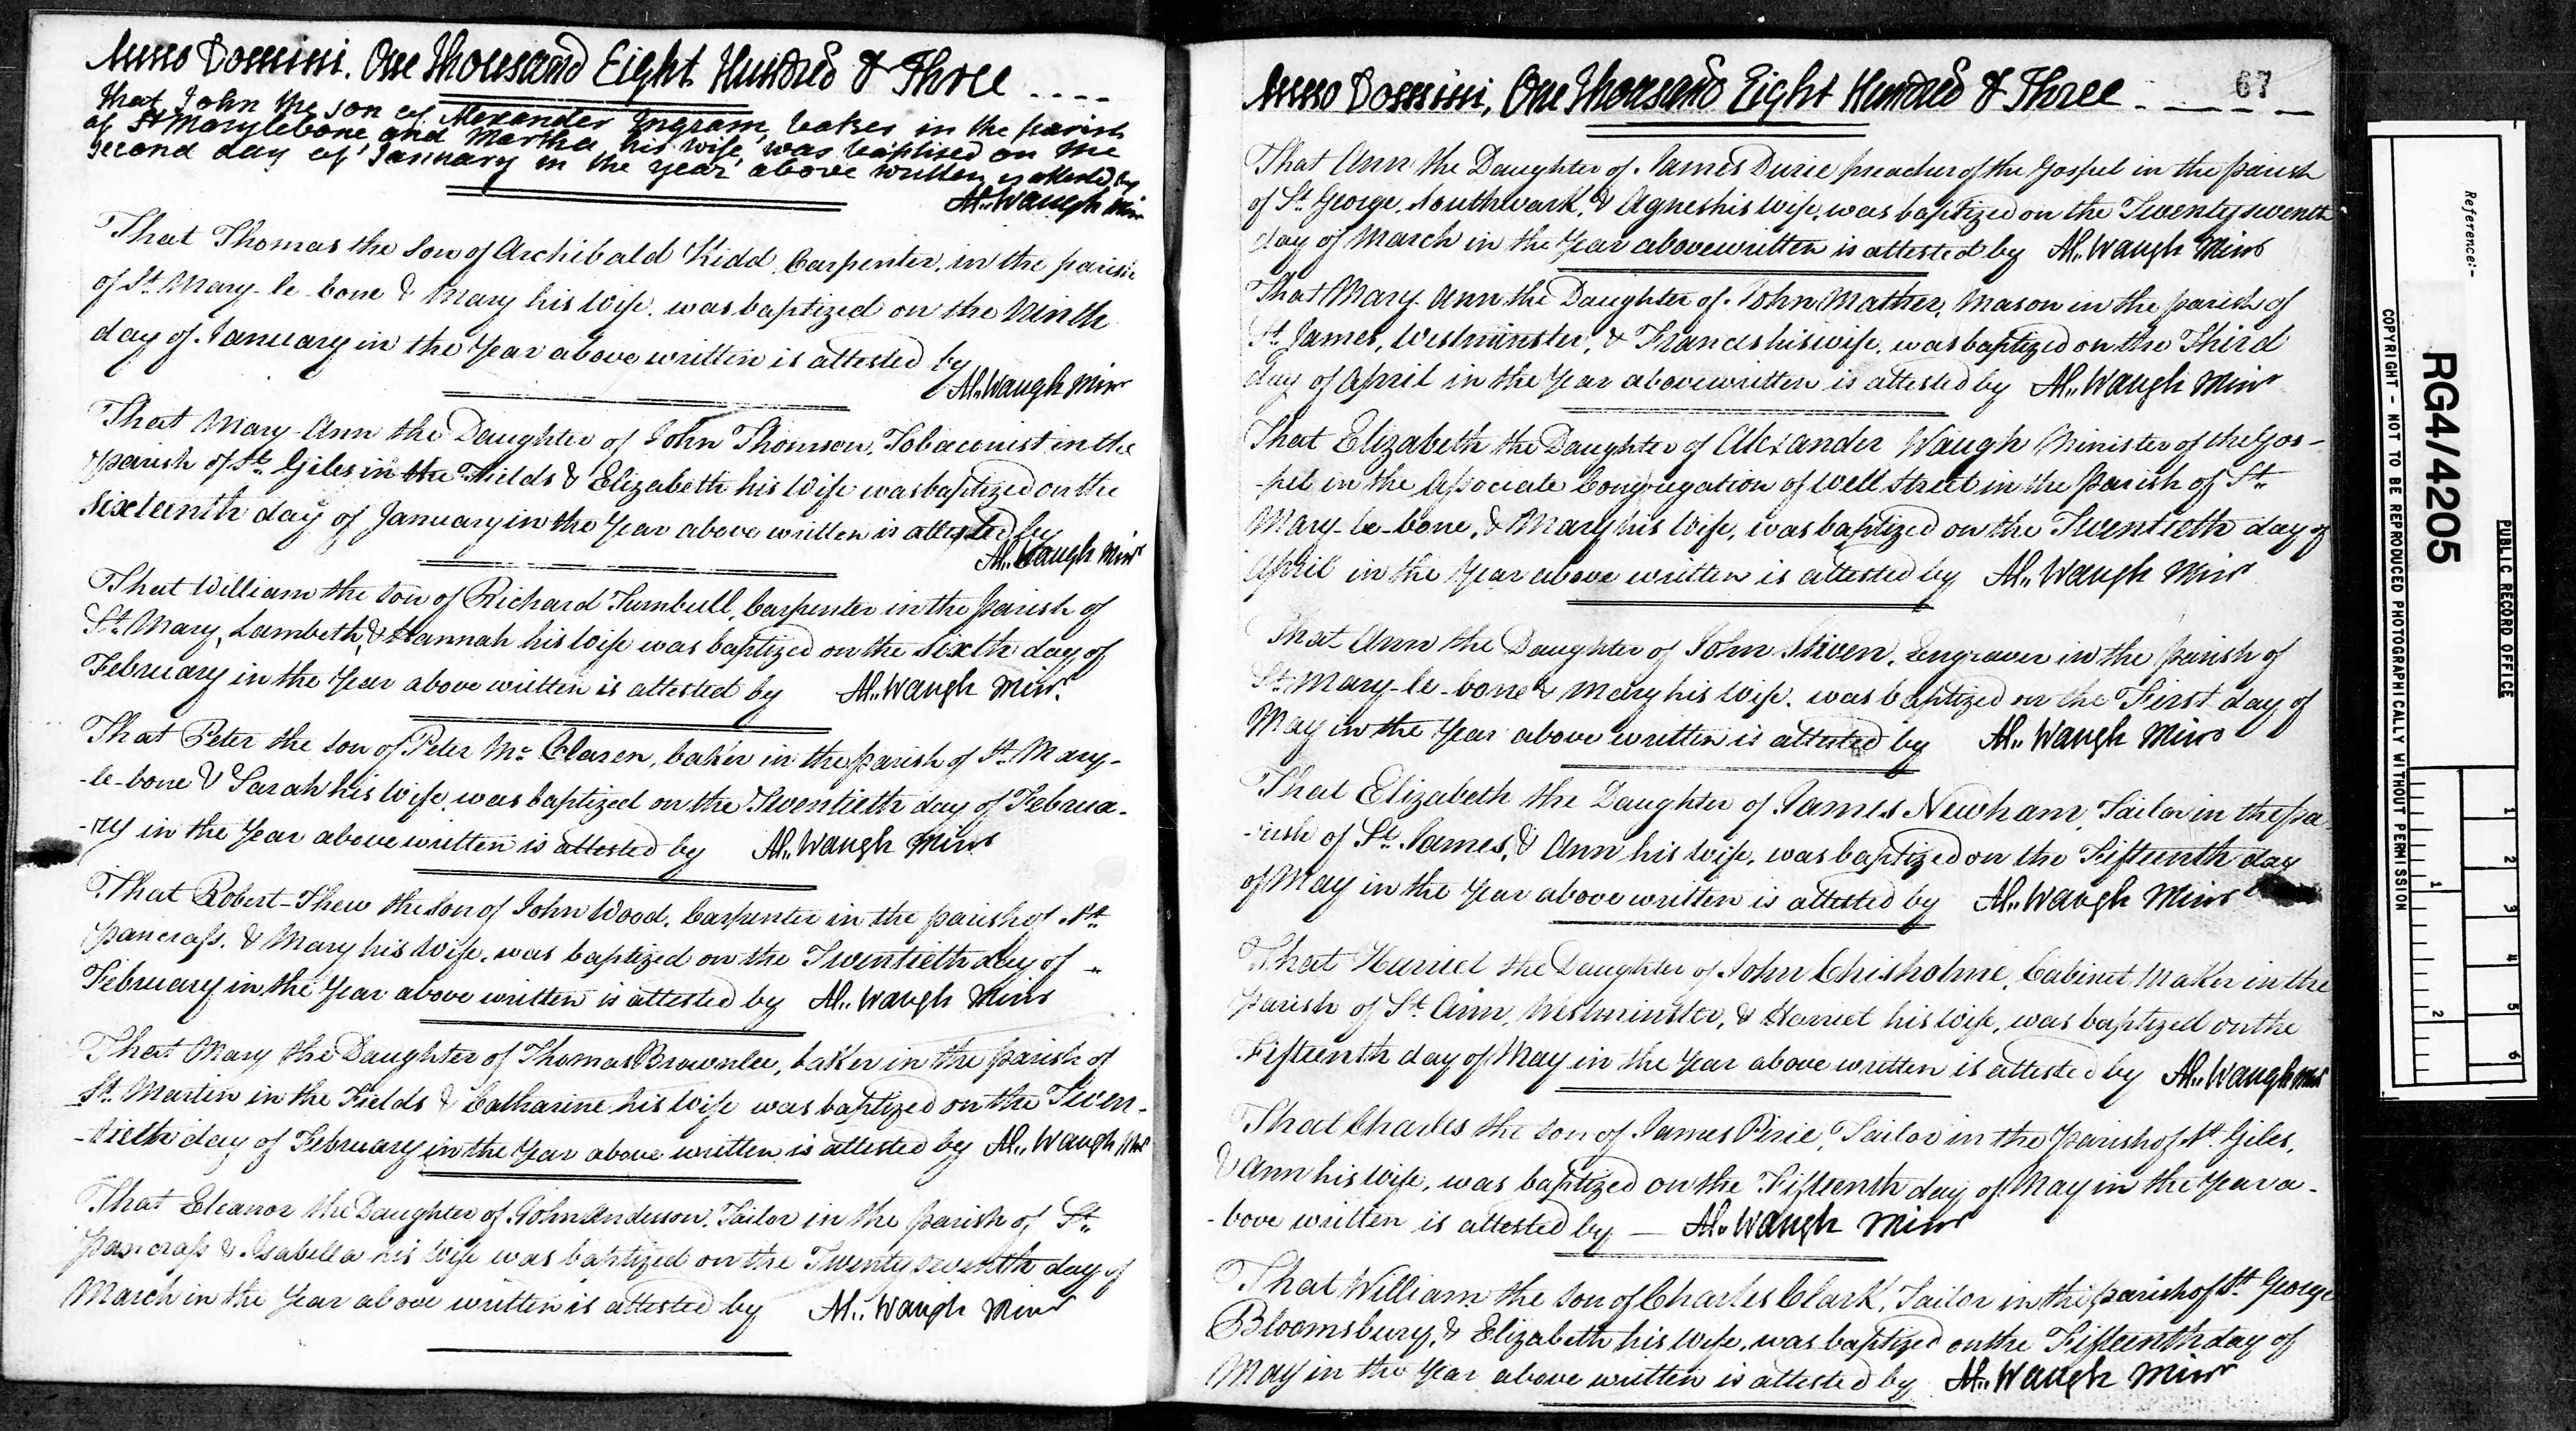 Anno Domini. One Thousand Eight Hundred & Three ....
That John the son of Alexander Ingram, baker in the parish
of St Marylebone and Martha his wife, was baptised on the
second day of January in the year above written is attested by
Al. Waugh Minr
That Thomas the Son of Archibald Kidd, Carpenter, in the parish
of St. Mary-le-bone & Mary his Wife. was baptized on the Ninth
day of January in the Year above written is attested by
Al. Waugh Minr
That Mary-Ann the Daughter of John Thomson, Tobaconist in the
parish of St. Giles in the Fields & Elizabeth his Wife was baptized on the
Sixteenth day of January in the Year above written is attested by
Al. Waugh Minr
That William the Son of Richard Turnbull, Carpenter in the parish of
St. Mary, Lambeth, & Hannah his Wife was baptized on the Sixth day of
February in the Year above written is attested by Al. Waugh Minr.
That Peter the son of Peter Mc Claren, baker in the parish of St. Mary-
-le-bone & Sarah his Wife, was baptized on the Twentieth day of Februa-
-ry in the Year above written is attested by Al. Waugh Minr
That Robert-Thew the Son of John Wood, Carpenter in the parish of St.
Pancrass, & Mary his Wife, was baptized on the Twentieth day of
February in the Year above written is attested by Al. Waugh Minr
That Mary the Daughter of Thomas Brownlee, baker in the parish of
St. Martin in the Fields & Catharine his Wife was baptized on the Twen-
-tieth day of February in the Year above written is attested by Al. Waugh Minr
That Eleanor the Daughter of John Anderson, Tailor in the parish of St.
Pancrass & Isabella his Wife was baptized on the Twenty seventh day of
March in the Year above written is attested by Al. Waugh Minr
Anno Domini, One Thousand Eight Hundred & Three
67
That Ann the Daughter of James Durie preacher of the Gospel in the parish
of St. George, Southwark, & Agnes his wife, was baptized on the Twenty seventh
day of March in the Year above written is attested by Al. Waugh Minr
That Mary-Ann the Daughter of John Mather, Mason in the parish of
St. James, Westminster, & Frances his wife, was baptized on the Third
day of April in the Year above written is attested by Al. Waugh Minr
That Elizabeth the Daughter of Alexander Waugh Minister of the Gos-
-pel in the Associate Congregation of Well Street in the Parish of St.
Mary-le-bone, & Mary his Wife, was baptized on the Twentieth day of
April in the Year above written is attested by Al. Waugh Minr
That Ann the Daughter of John Sliven, Engraver in the parish of
St. Mary-le-bone & Mary his Wife, was baptized on the First day of
May in the Year above written is attested by Al. Waugh Minr
That Elizabeth the Daughter of James Newham, Tailor in the pa-
-rish of St. James, & Ann his Wife, was baptized on the Fifteenth day
of May in the Year above written is attested by Al. Waugh Minr
That Harriet the Daughter of John Chisholme, Cabinet Maker in the
parish of St. Ann, Westminster, & Harriet his Wife, was baptized on the
Fifteenth day of May in the Year above written is attested by Al. Waugh Minr
That Charles the son of James Pirie, Tailor in the Parish of St. Giles,
& Ann his Wife, was baptized on the Fifteenth day of May in the Year a-
-bove written is attested by — Al. Waugh Minr
That William the Son of Charles Clark, Tailor in the parish of St. George
Bloomsbury, & Elizabeth his Wife, was baptized on the Fifteenth day of
May in the Year above written is attested by Al. Waugh Minr
PUBLIC RECORD OFFICE
Reference:-
RG4/4205
COPYRIGHT - NOT TO BE REPRODUCED PHOTOGRAPHICALLY WITHOUT PERMISSION
1 2 3 4 5 6
1 2